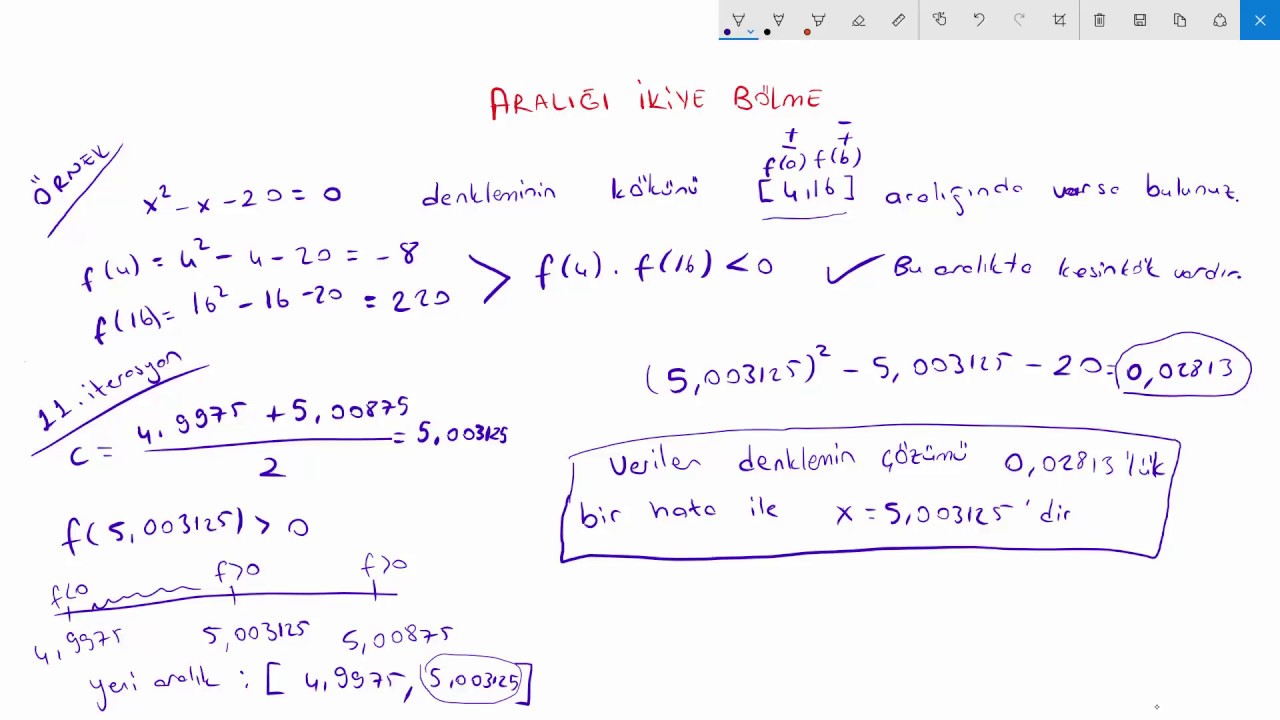 ARALIĞI İKİYE BÖLME
ÖRNEK
+ -
- +
f(a) f(b)
x² - x - 20 = 0 denkleminin kökünü [4,16] aralığında varsa bulunuz.
f(4) = 4² - 4 - 20 = -8
f(16) = 16² - 16 - 20 = 220
f(4) . f(16) < 0 ✓ Bu aralıkta kesin kök vardır.
11. iterasyon
c = (4,9975 + 5,00875) / 2 = 5,003125
f(5,003125) > 0
f<0 f>0 f>0
4,9975 5,003125 5,00875
yeni aralık : [4,9975, 5,003125]
(5,003125)² - 5,003125 - 20 = 0,02813
Verilen denklemin çözümü 0,02813'lük
bir hata ile x = 5,003125'dir